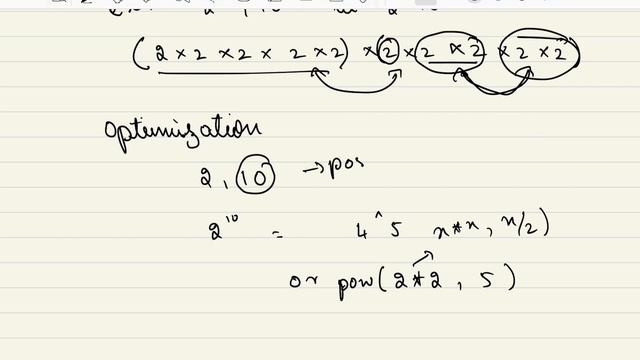 (2 × 2 × 2 × 2 × 2) × 2 × 2 × 2 × 2 × 2
Optimization
2, 10 → pos
2^10 = 4^5 x*x, x/2)
or pow(2*2, 5)